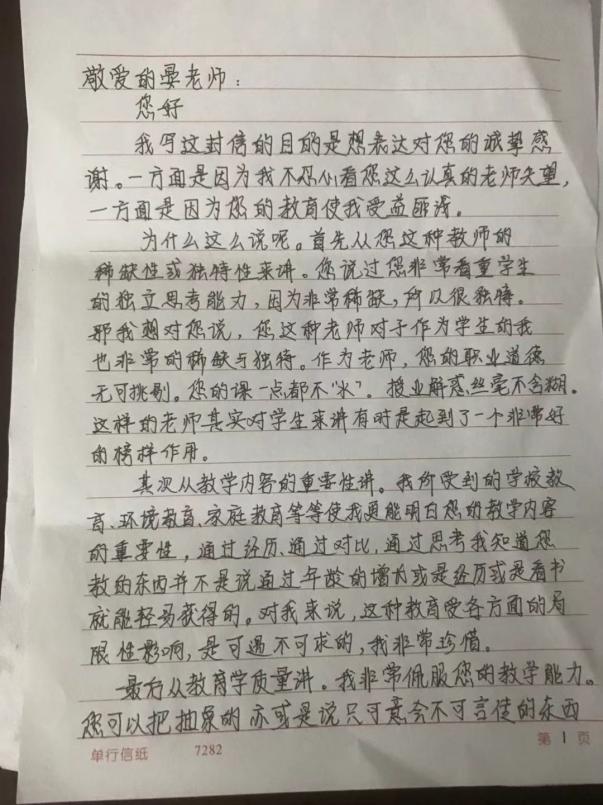 敬爱的晏老师：
您好
我写这封信的目的是想表达对您的诚挚感
谢。一方面是因为我不忍心看您这么认真的老师失望，
一方面是因为您的教育使我受益匪浅。
为什么这么说呢。首先从您这种教师的
稀缺性或独特性来讲。您说过您非常看重学生
的独立思考能力，因为非常稀缺，所以很独特。
那我想对您说，您这种老师对于作为学生的我
也非常的稀缺与独特。作为老师，您的职业道德
无可挑剔。您的课一点都不"水"。授业解惑丝毫不含糊。
这样的老师其实对学生来讲有时是起到了一个非常好
的榜样作用。
其次从教学内容的重要性讲。我所受到的学校教
育、环境教育、家庭教育等等使我更能明白您的教学内容
的重要性，通过经历、通过对比，通过思考我知道您
教的东西并不是说通过年龄的增长或是经历或是看书
就能轻易获得的。对我来说，这种教育受各方面的局
限性影响，是可遇不可求的，我非常珍惜。
最后从教育学质量讲。我非常佩服您的教学能力。
您可以把抽象的亦或是说只可意会不可言传的东西
单行信纸 7282 第 1 页